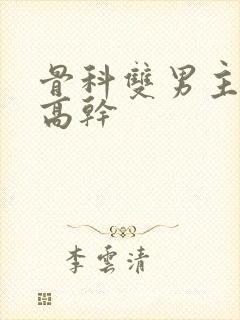 骨科雙男主
高幹
李雲清